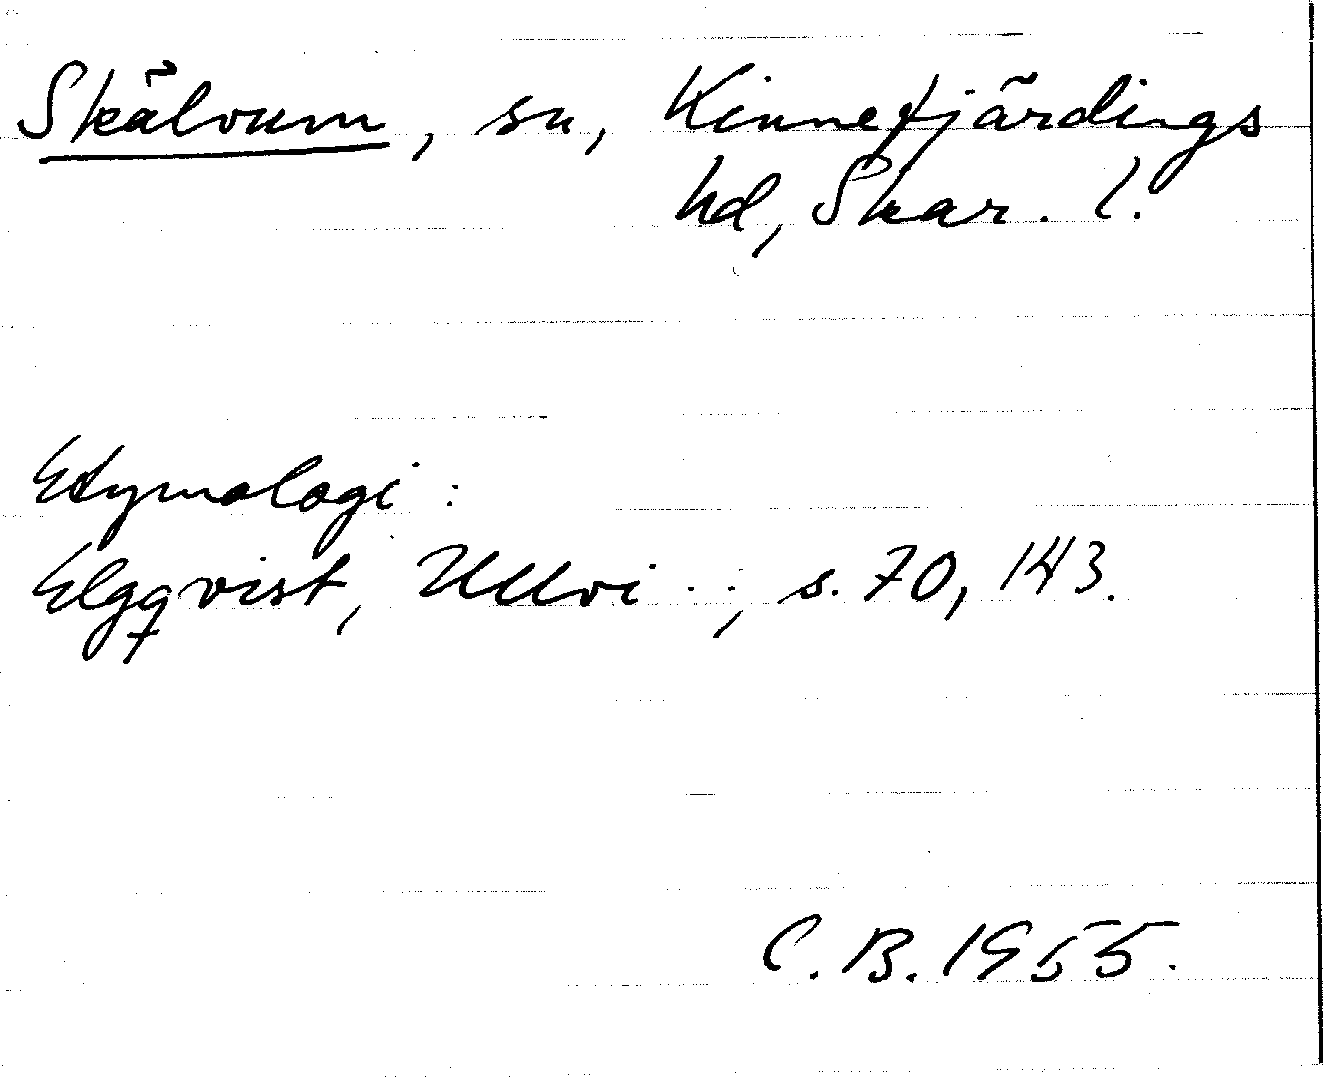 Skälvum, sn, Kinnefjärdings
hd, Skar. l.
Etymologi:
Elgqvist, Ullvi..., s. 70, 143.
C. B. 1955.